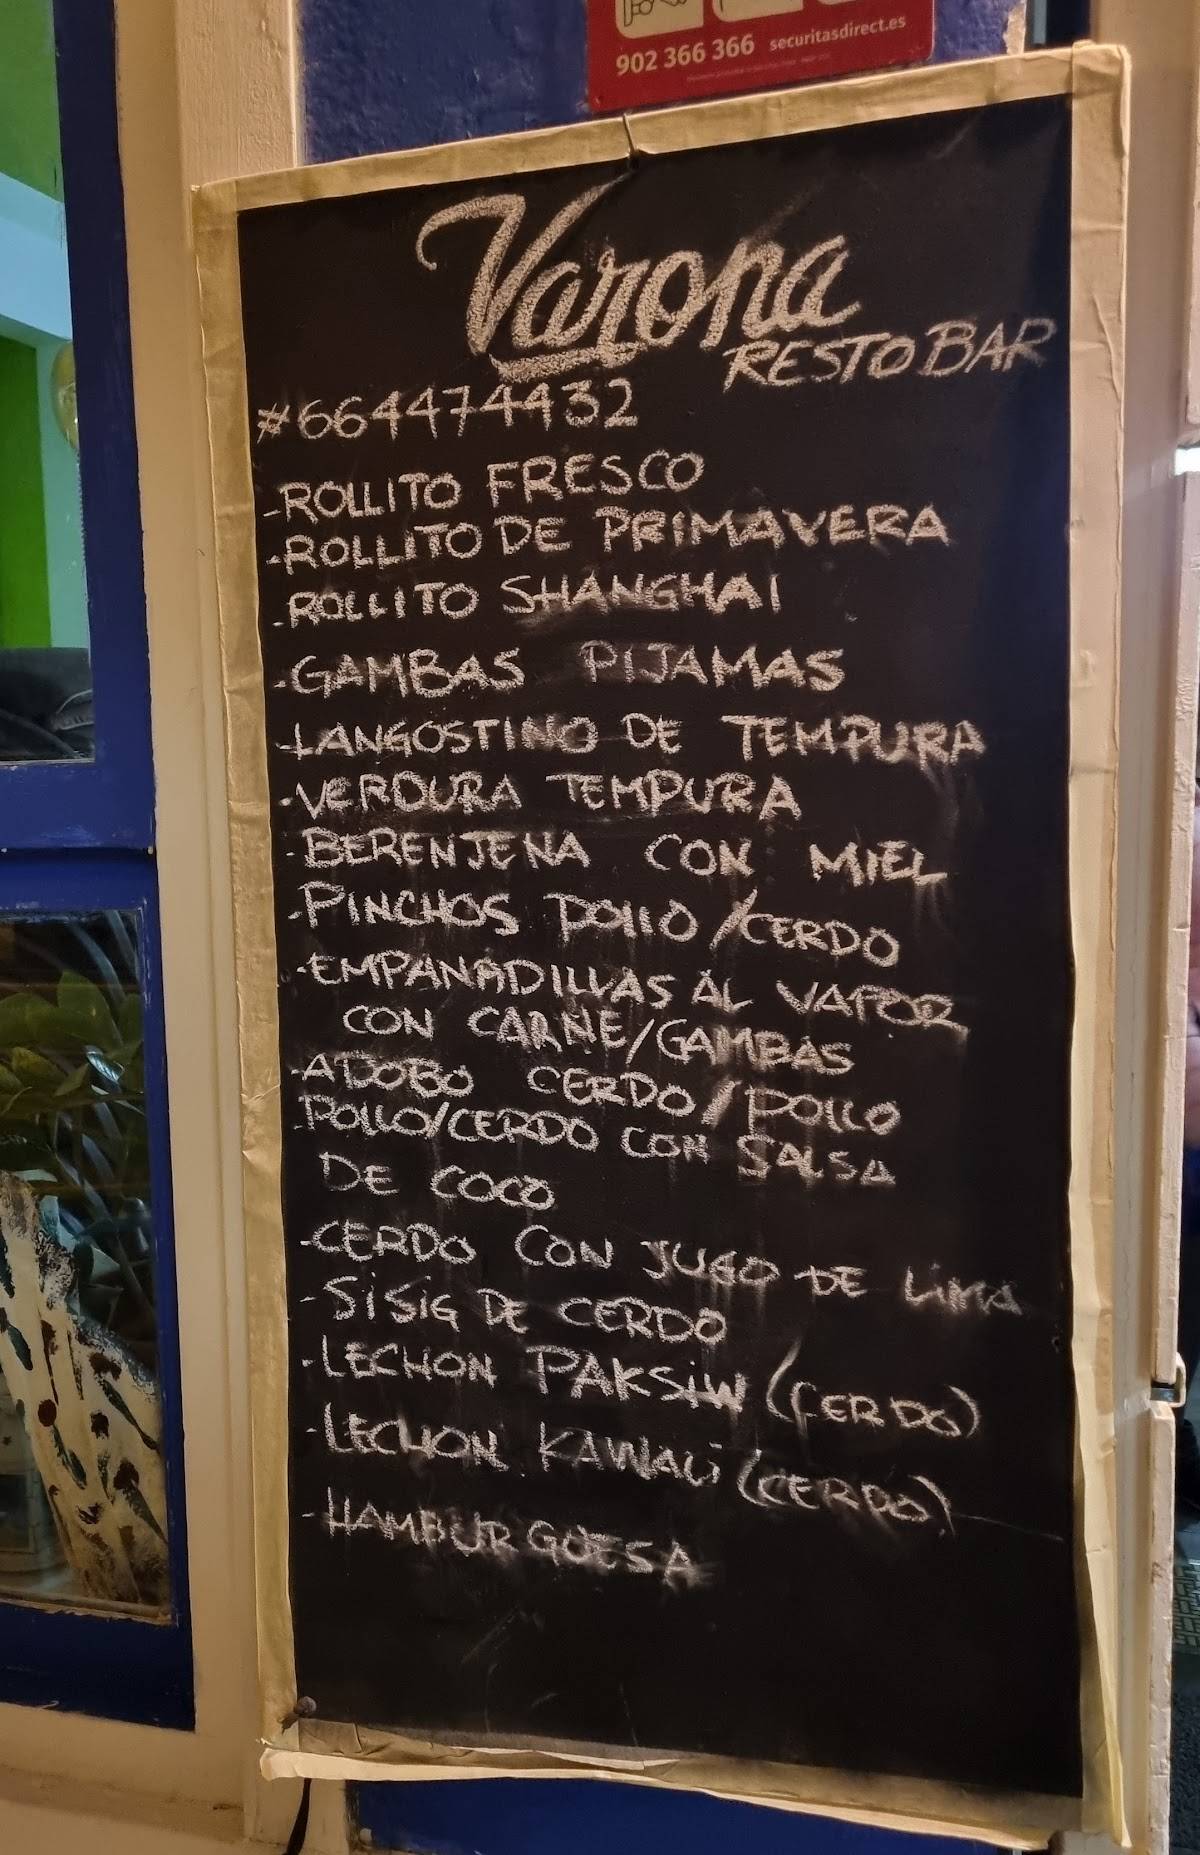 902 366 366 securitasdirect.es
Varona
RESTOBAR
#664474432
-ROLLITO FRESCO
-ROLLITO DE PRIMAVERA
-ROLLITO SHANGHAI
-GAMBAS PIJAMAS
-LANGOSTINO DE TEMPURA
-VERDURA TEMPURA
-BERENJENA CON MIEL
-PINCHOS POLLO/CERDO
-EMPANADILLAS AL VAPOR
CON CARNE/GAMBAS
-ADOBO CERDO/POLLO
-POLLO/CERDO CON SALSA
DE COCO
-CERDO CON JUGO DE LIMA
-SISIG DE CERDO
-LECHON PAKSIW (CERDO)
-LECHON KAWALI (CERDO)
-HAMBURGUESA